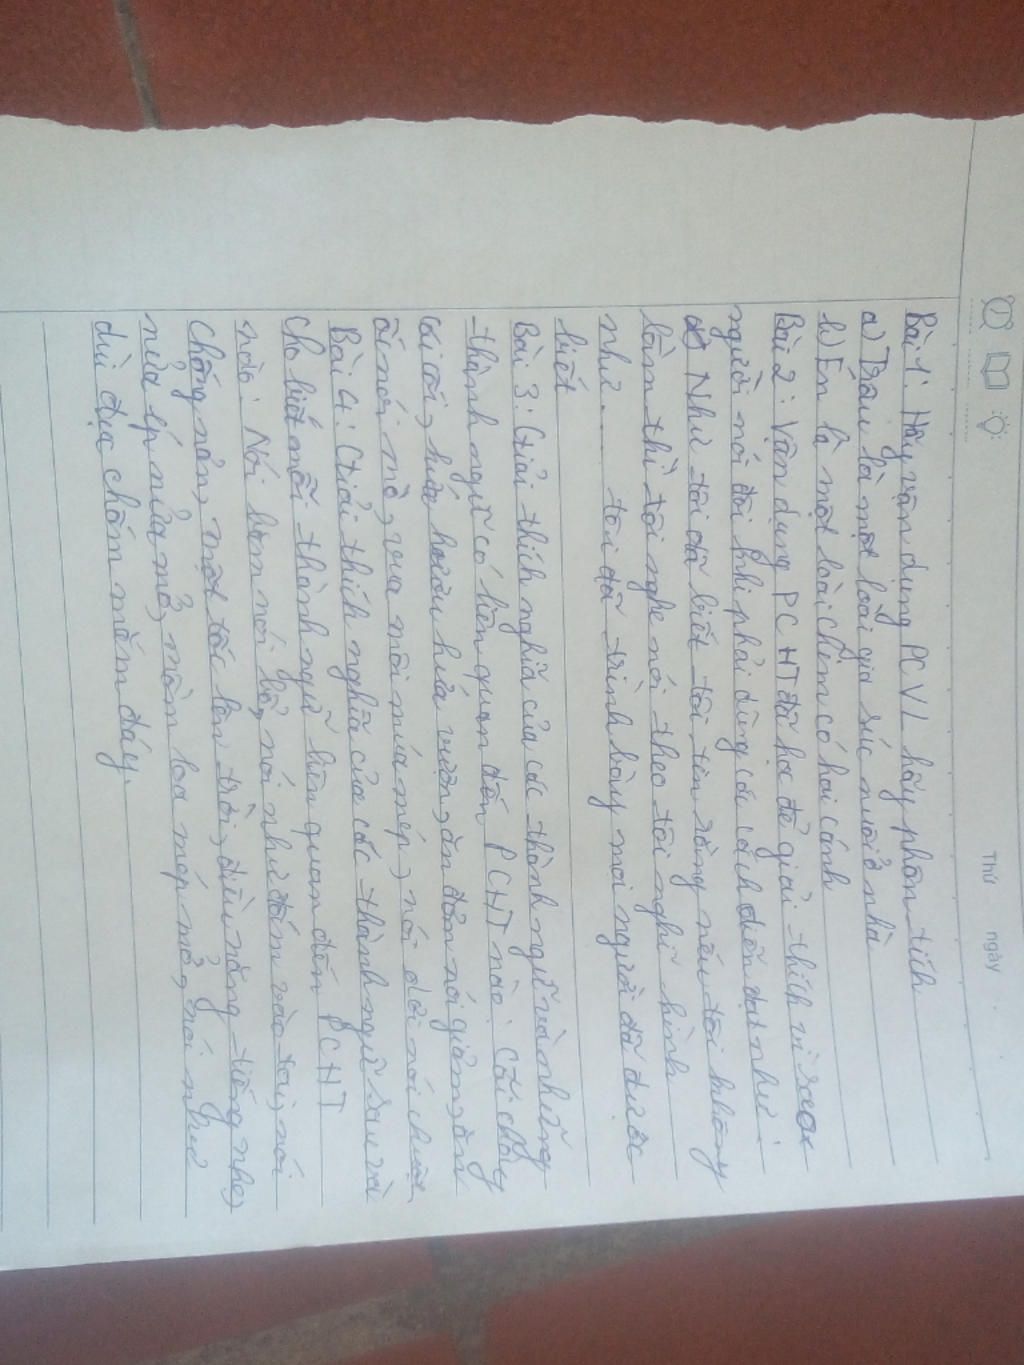 Thứ ngày
Bài 1: Hãy vận dụng PCVL hãy phân tích
a) Trâu là một loài gia súc nuôi ở nhà
b) Én là một loài chim có hai cánh
Bài 2: Vận dụng PCHT đã học để giải thích vì sao
người nói đôi khi phải dùng các cách diễn đạt như:
Như tôi đã biết tôi tin rằng nếu tôi không
lầm thì tôi nghe nói theo tôi nghĩ hình
như..... tôi đã trình bày mọi người đã được
biết
Bài 3: Giải thích nghĩa của các thành ngữ và những
thành ngữ có liên quan đến PCHT nào: Cãi chày
cãi cối, hứa hươu hứa vượn, ăn đơm nói, ăn
ốc nói mò, khua môi múa mép, nói dơi nói chuột
Bài 4: Giải thích nghĩa của các thành ngữ sau và
cho biết mỗi thành ngữ liên quan đến PCHT
nào: Nói băm nói bổ, nói như đấm vào tai, nói
tấc lên trời, điều nặng tiếng nhẹ,
nửa úp nửa mở, mồm loa mép, nói như
dùi đục chấm mắm cáy.